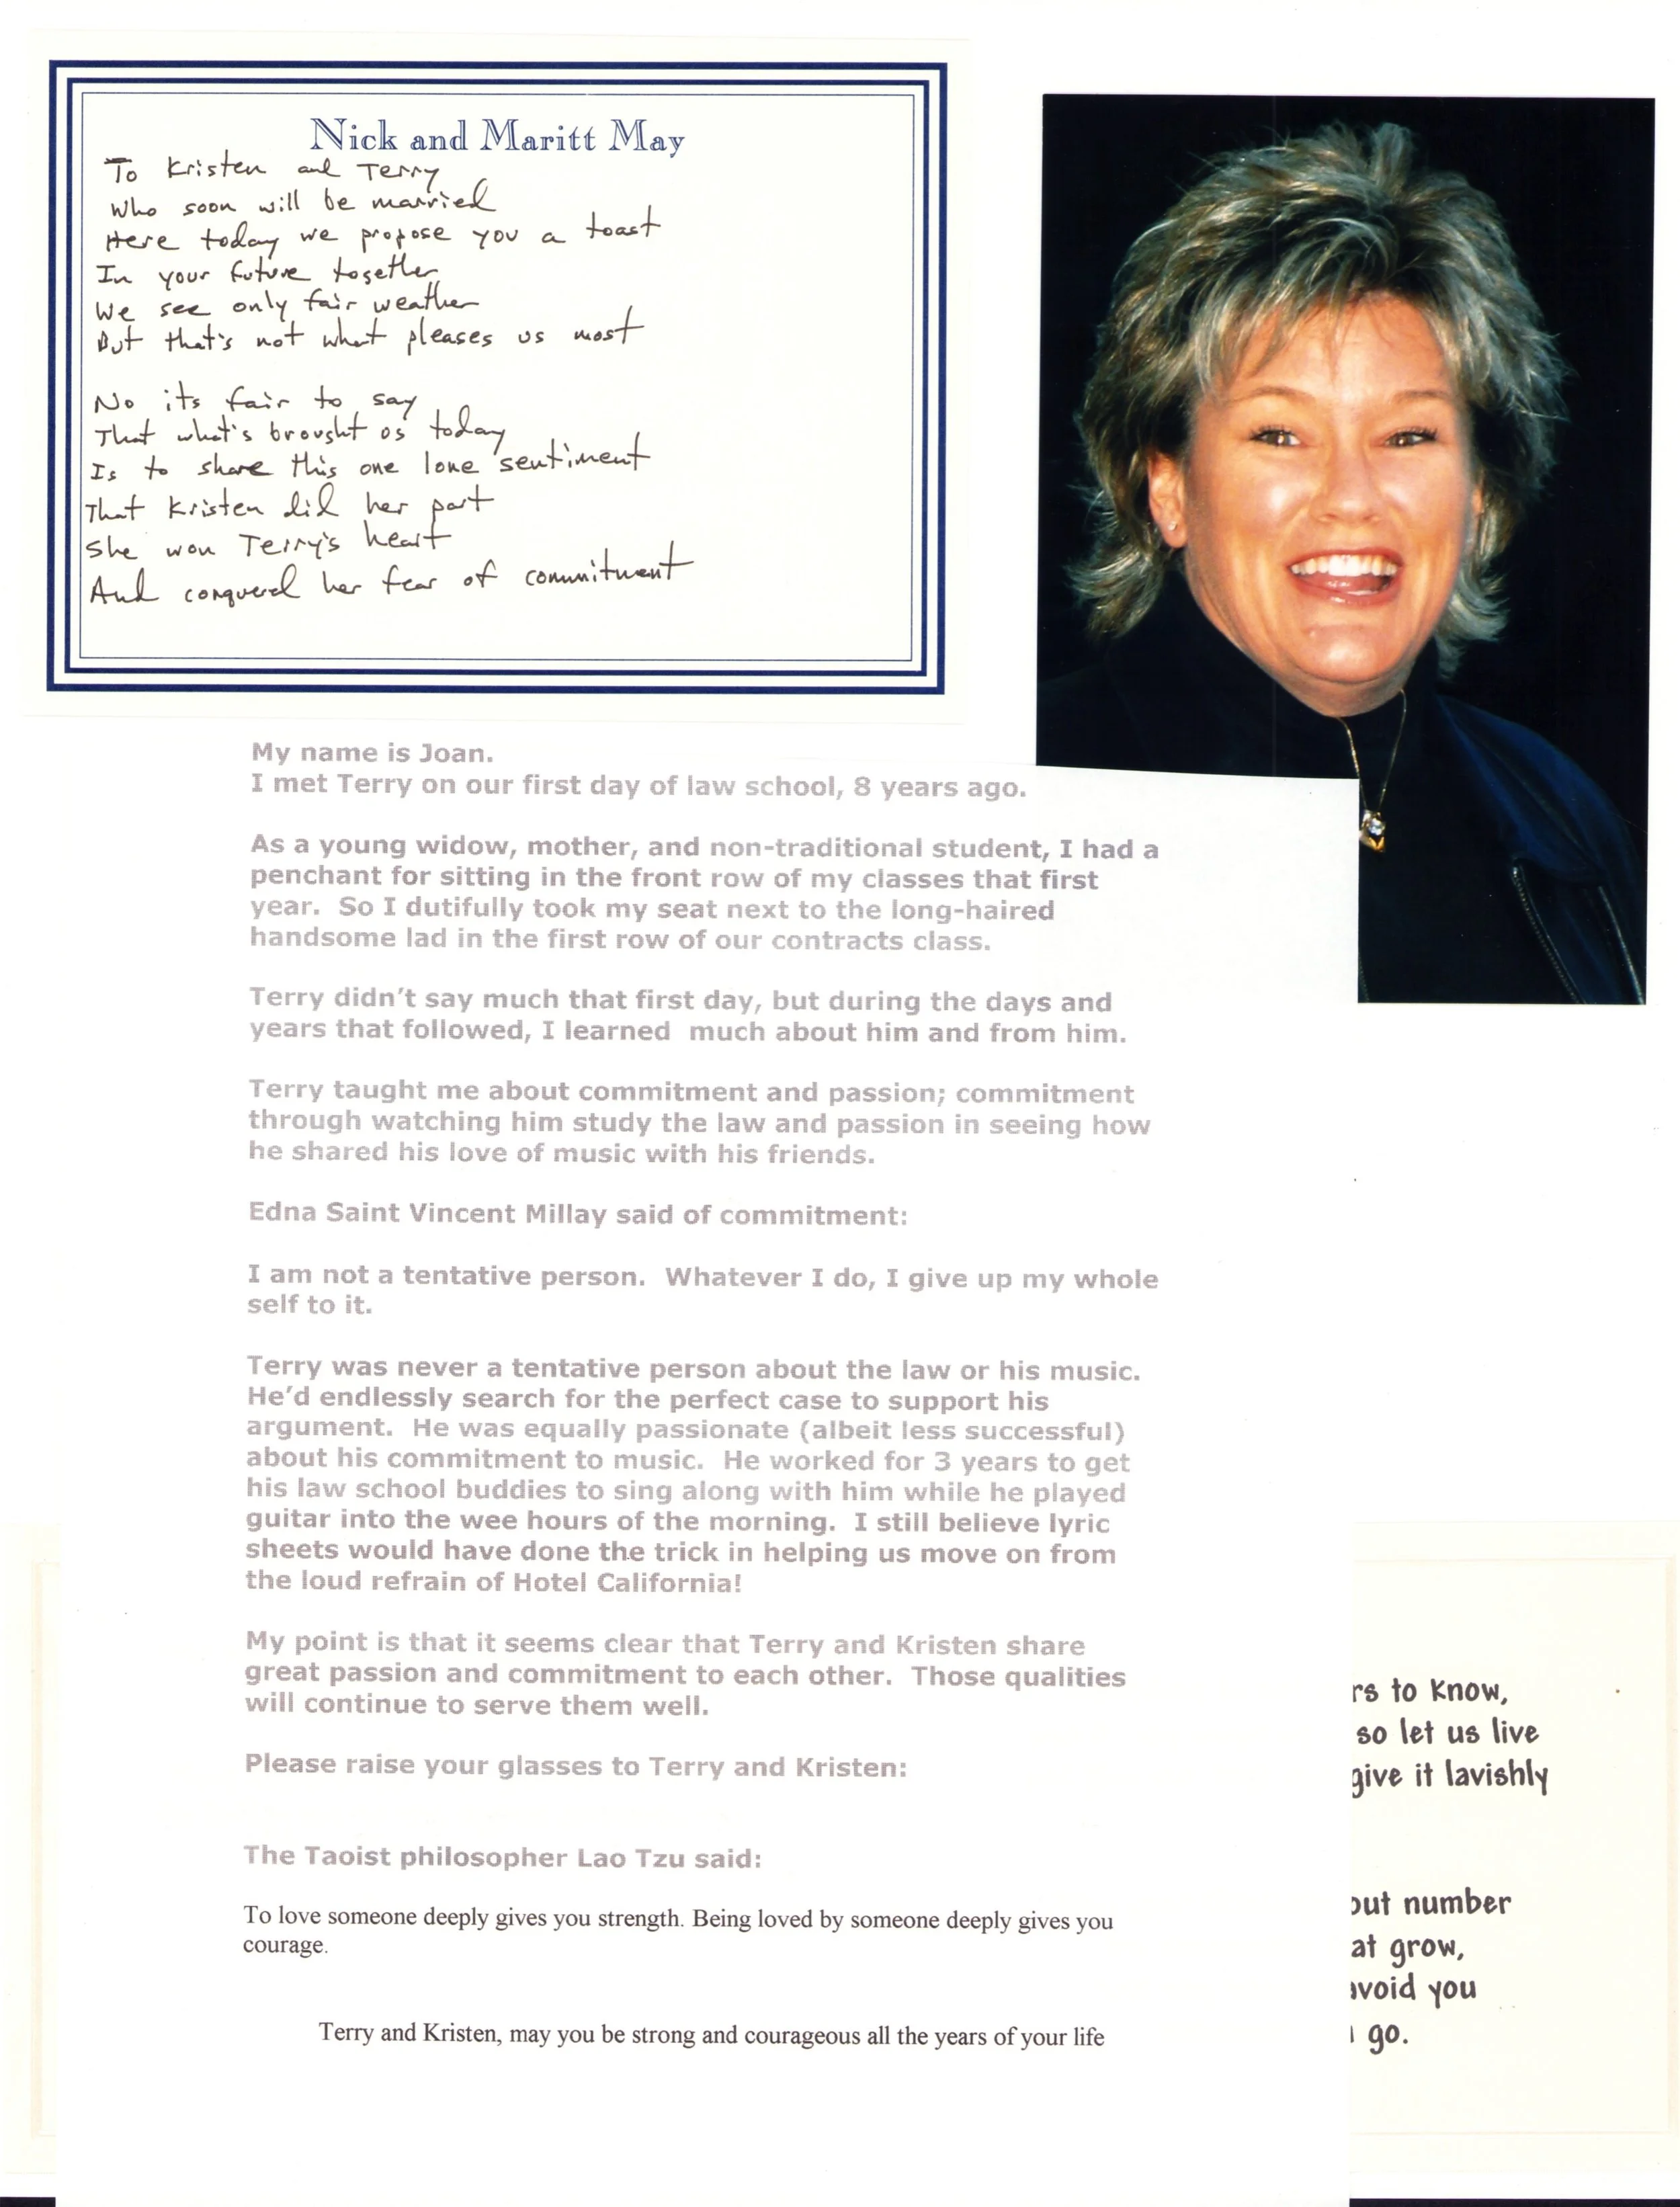 Nick and Maritt May
To Kristen and Terry
Who soon will be married
Here today we propose you a toast
In your future together
We see only fair weather
But that's not what pleases us most
No its fair to say
That what's brought us today
Is to share this one lone sentiment
That Kristen did her part
She won Terry's heart
And conquered her fear of commitment
My name is Joan.
I met Terry on our first day of law school, 8 years ago.
As a young widow, mother, and non-traditional student, I had a
penchant for sitting in the front row of my classes that first
year.  So I dutifully took my seat next to the long-haired
handsome lad in the first row of our contracts class.
Terry didn't say much that first day, but during the days and
years that followed, I learned  much about him and from him.
Terry taught me about commitment and passion; commitment
through watching him study the law and passion in seeing how
he shared his love of music with his friends.
Edna Saint Vincent Millay said of commitment:
I am not a tentative person.  Whatever I do, I give up my whole
self to it.
Terry was never a tentative person about the law or his music.
He'd endlessly search for the perfect case to support his
argument.  He was equally passionate (albeit less successful)
about his commitment to music.  He worked for 3 years to get
his law school buddies to sing along with him while he played
guitar into the wee hours of the morning.  I still believe lyric
sheets would have done the trick in helping us move on from
the loud refrain of Hotel California!
My point is that it seems clear that Terry and Kristen share
great passion and commitment to each other.  Those qualities
will continue to serve them well.
Please raise your glasses to Terry and Kristen:
The Taoist philosopher Lao Tzu said:
To love someone deeply gives you strength. Being loved by someone deeply gives you
courage.
Terry and Kristen, may you be strong and courageous all the years of your life
rs to know,
so let us live
give it lavishly
out number
at grow,
avoid you
go.